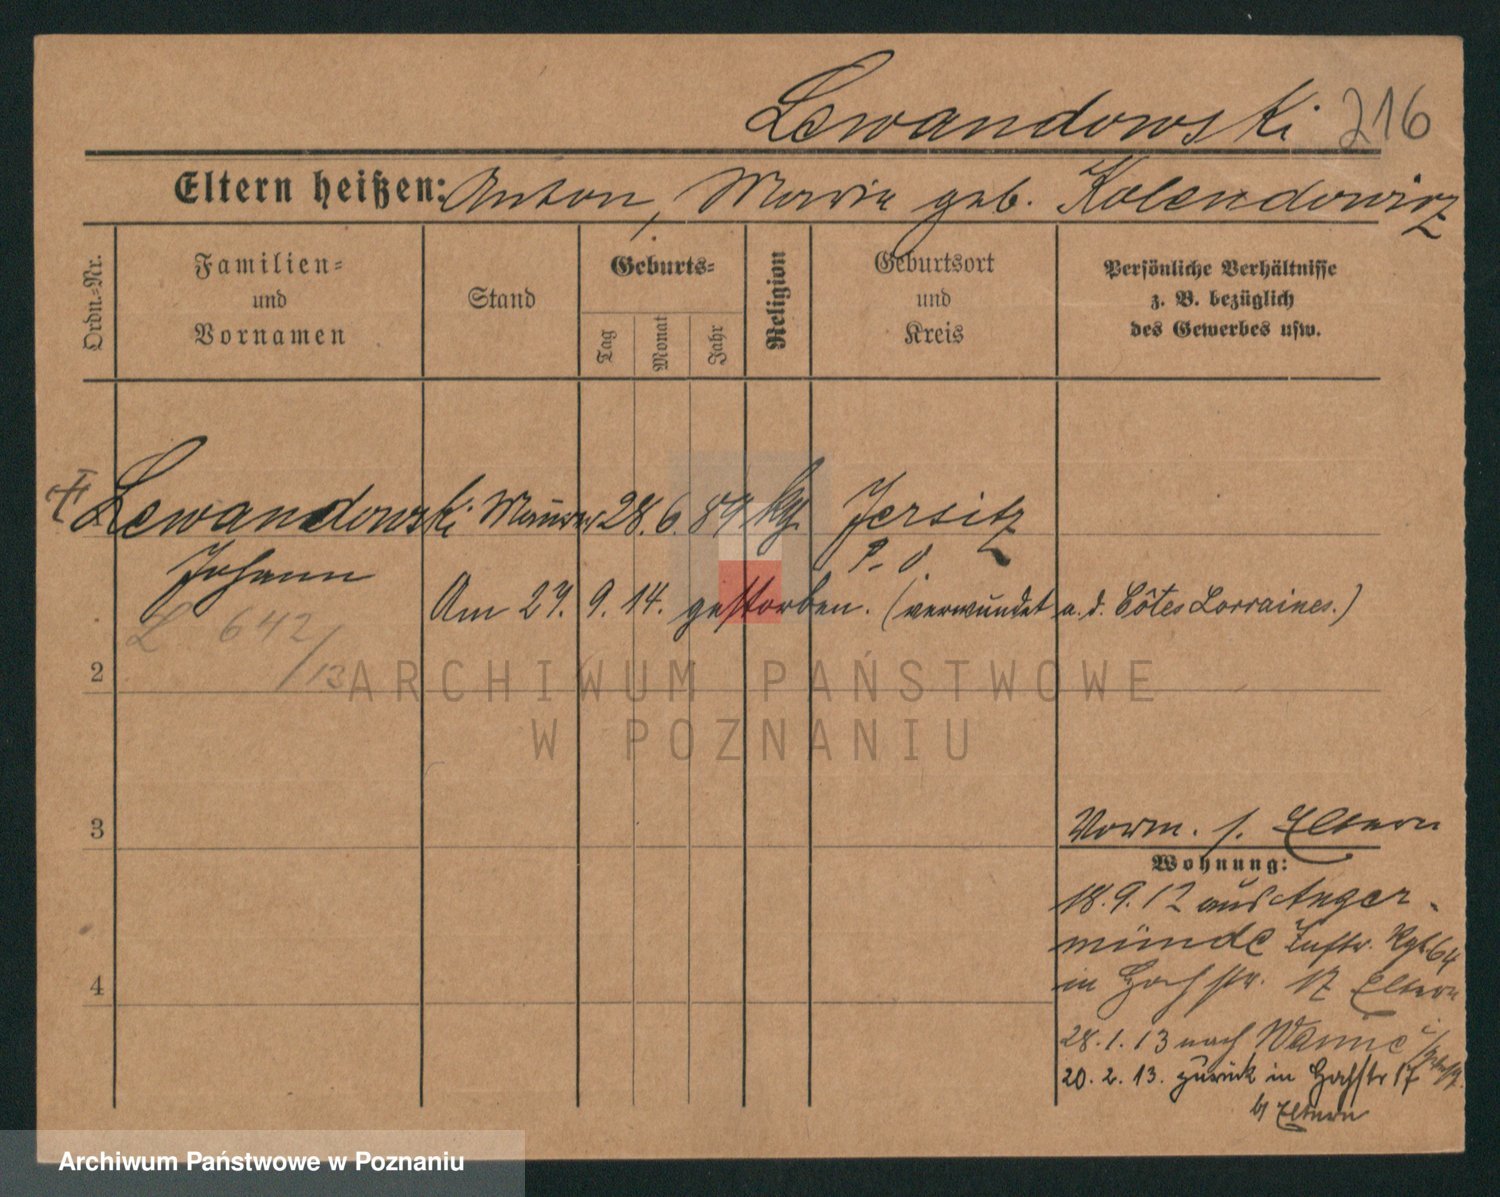 Lewandowski 216
Eltern heißen: Anton, Maria geb. Kolendowicz
Ordn.-Nr.
Familien-
und
Vornamen
Stand
Geburts-
Tag
Monat
Jahr
Religion
Geburtsort
und
Kreis
Persönliche Verhältnisse
z. B. bezüglich
des Gewerbes usw.
Lewandowski Maurer 28. 6. 89 kg. Jersitz
Johann P. O.
Am 27. 9. 14. gestorben. (verwundet a. d. Côtes Lorraines.)
L 642/13
2
ARCHIWUM PAŃSTWOWE
W POZNANIU
3
Vorm. s. Eltern
Wohnung:
18. 9. 12 aus Anger-
münde Inftr. Rgt 64
4
in Hochstr. 17 Eltern
28. 1. 13 nach Wanne
20. 2. 13. zurück in Hochstr 17
b/ Eltern
Archiwum Państwowe w Poznaniu